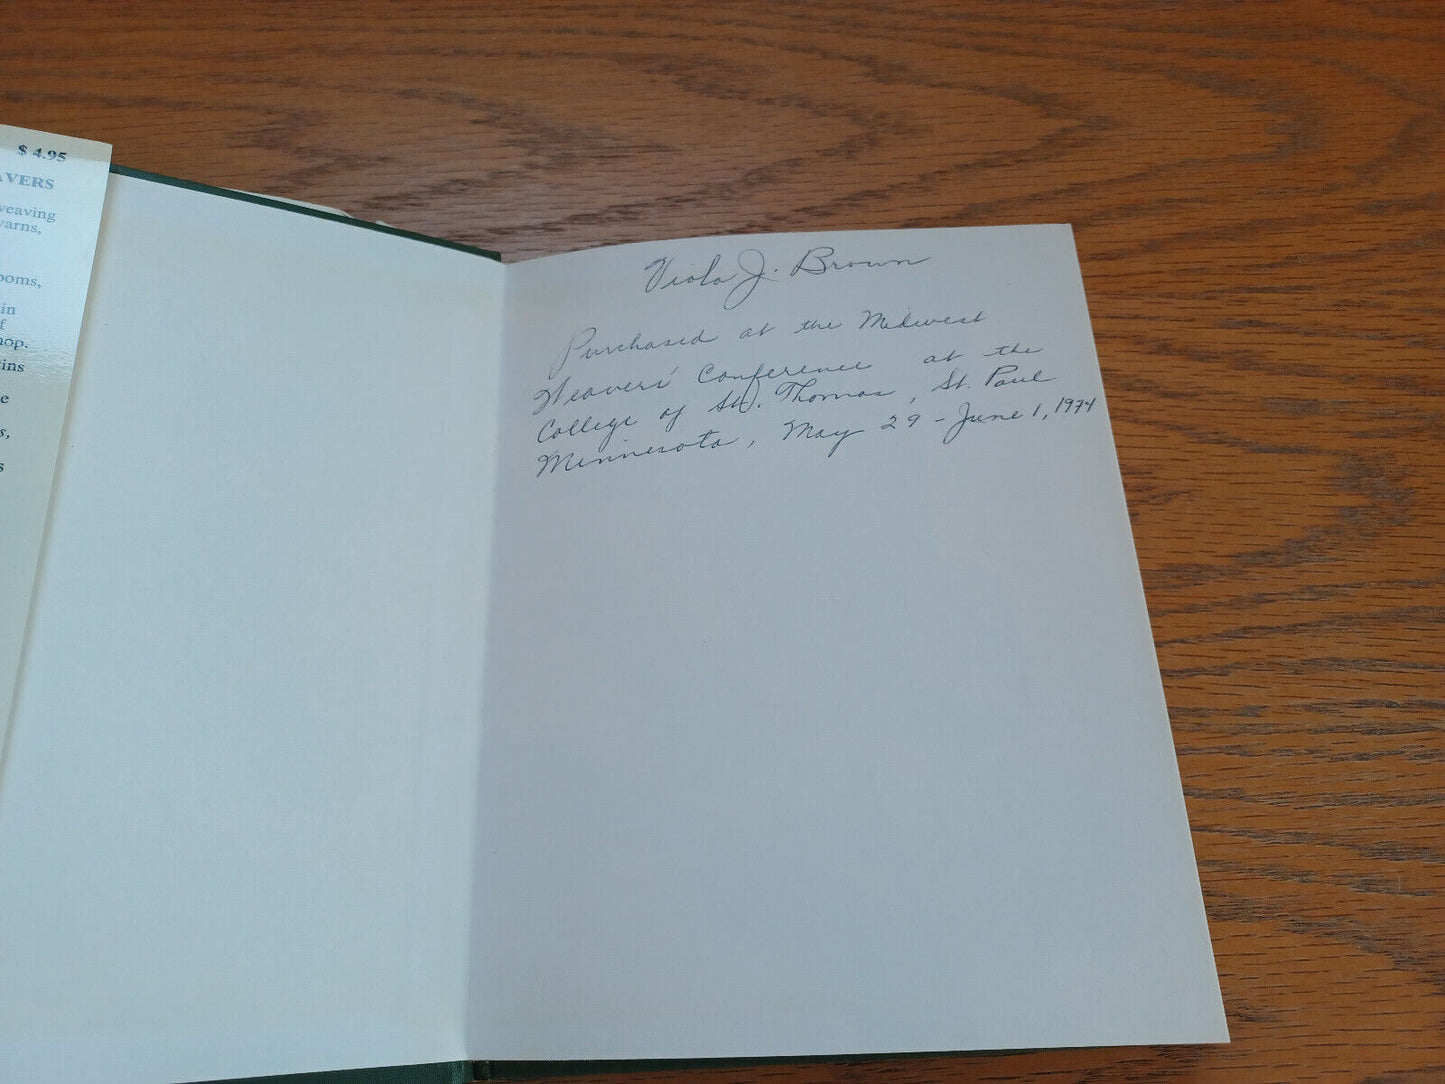 $ 4.95
AVERS
weaving
yarns,
ooms,
in
f
hop.
ins
e
s,
s
Viola J. Brown
Purchased at the Midwest
Weavers' Conference at the
College of St. Thomas, St. Paul
Minnesota, May 29 - June 1, 1974